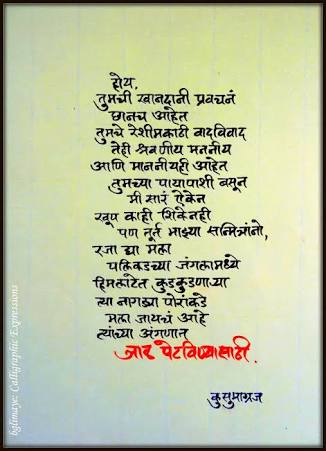 होय,
तुमची खानदानी प्रवचनं
छानच आहेत
तुमचे रेशीमकाठी वादविवाद
तेही श्रवणीय मननीय
आणि माननीयही आहेत
तुमच्या पायापाशी बसून
मी सारं ऐकेन
खूप काही शिकेनही
पण तूर्त माझ्या सन्मित्रांनो,
रजा द्या मला
पलिकडच्या जंगलामध्ये
हिमलाटेत कुडकुडणाऱ्या
त्या नागड्या पोरांकडे
मला जायचं आहे
त्यांच्या अंगणात
जाळ पेटविण्यासाठी.
कुसुमाग्रज
bglimaye: Calligraphic Expressions